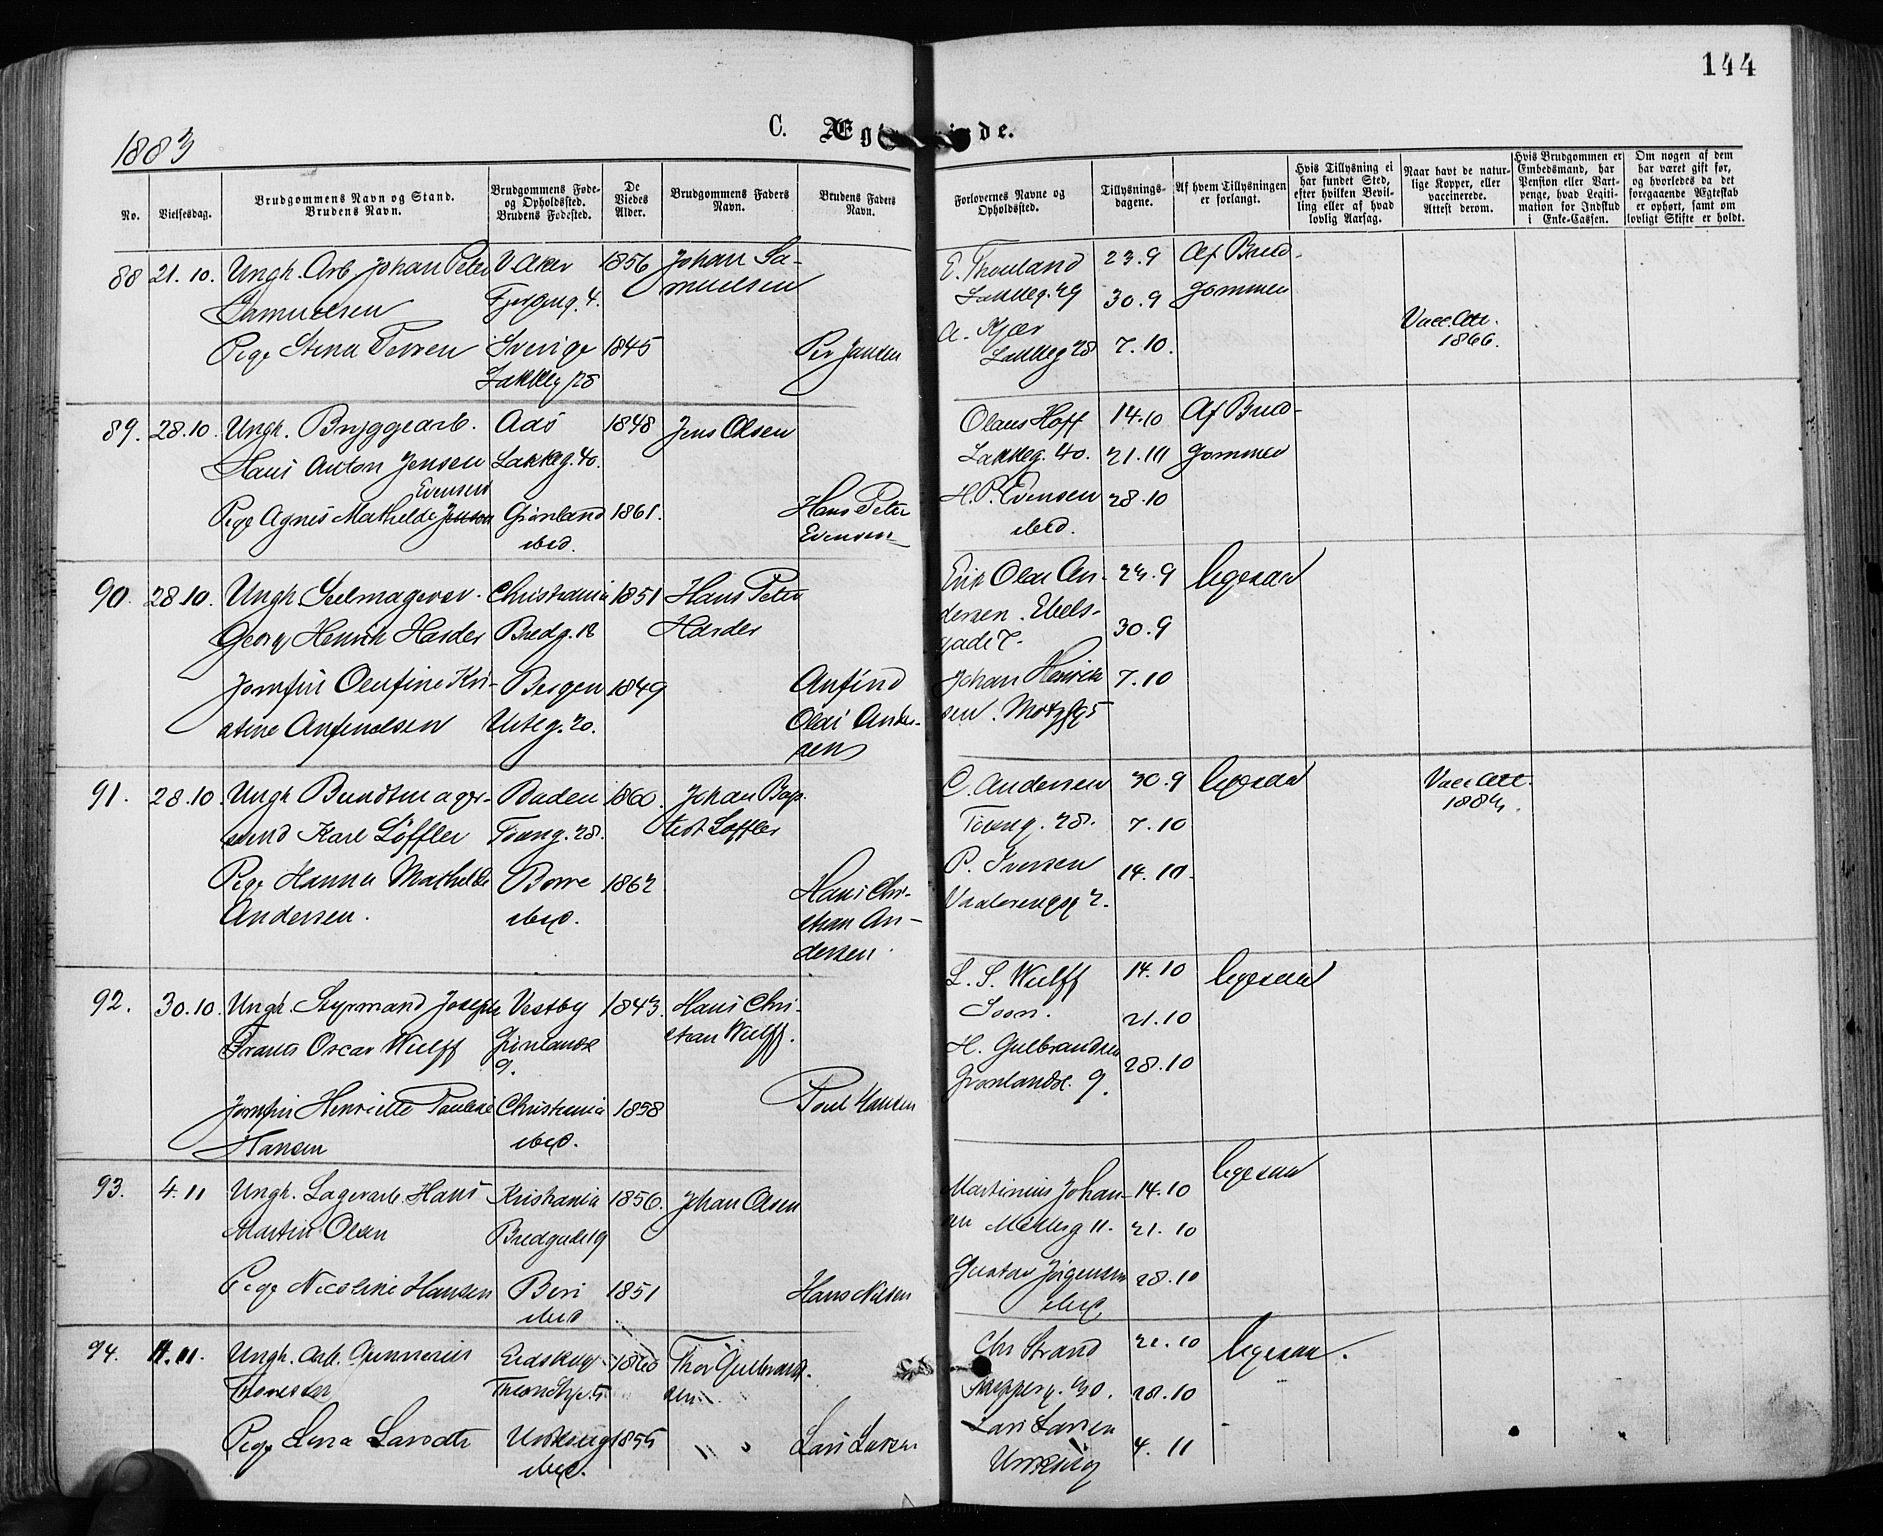 144
C. Ægt
de.
1883
No.
Vielsesdag.
Brudgommens Navn og Stand.
Brudens Navn.
Brudgommens Føde-
og Opholdssted.
Brudens Fødested.
De
Viedes
Alder.
Brudgommens Faders
Navn.
Brudens Faders
Navn.
Forlovernes Navne og
Opholdssted.
Tillysnings-
dagene.
Af hvem Tillysningen
er forlangt.
Hvis Tillysning ei
har fundet Sted,
efter hvilken Bevil-
ling eller af hvad
lovlig Aarsag.
Naar havt de natur-
lige Kopper, eller
vaccinerede.
Attest derom.
Hvis Brudgommen er
Embedsmand, har
Pension eller Vart-
penge, hvad Legiti-
mation for Indskud
i Enke-Cassen.
Om nogen af dem
har været gift før,
og hvorledes da det
foregaaende Ægteskab
er ophørt, samt om
lovligt Skifte er holdt.
88 21.10. Ungk. Arb. Johan Peter V. Aker 1856 Johan Sa- 23.9 Af Brud-
Samuelsen 4. muelsen Lakkeg. 29 30.9 gommen
Pige Stina Sverige 1845 Per A. Kjær 7.10. Vacc. Att.
Lakkeg 28 Lakkeg 28 1866.
89. 28.10. Ungk. Bryggearb. Aas 1848 Jens Olsen Olaus Hoff 14.10 Af Brud-
Hans Anton Jensen Lakkeg. 40. Lakkeg. 40. 21.10 gommen
Evensen
Pige Agnes Mathilde Jensen Grønland 1861. Hans Peter H. P. Evensen 28.10
ibid. Evensen ibid.
90. 28.10. Ungk. Seilmagersv. Christiania 1851 Hans Peter Erik Olai An- 23.9 ligesaa
Georg Henrik Harder Bredg. 18 Harder dersen. Ebels- 30.9
gade 7.
Jomfru Olufine Kri- Bergen 1849 Anfind Johan Henrik 7.10
stine Anfindsen Urteg. 20. Olai Ander- sen.
sen
91. 28.10. Ungk. Bundtmager- Baden 1860. Johan Bap- C. Andersen 30.9 ligesaa Vacc. Att.
svend Karl Löffler 28. tist Löffler 28. 7.10 1884.
Pige Hanna Mathilde Borre 1862 Hans Chri- P. Iversen 14.10.
Andersen. ibid. stian An- Vaalerengg 2.
dersen.
92. 30.10. Ungk. Styrmand Joseph Vestby 1843. Hans Chri- L. S. Wulff 14.10 ligesaa
Frants Oscar Wulff Grønlandsl. stian Wulff. Soon. 21.10
9. H. Gulbrandsen 28.10
Grønlandsl. 9.
Jomfru Henriette Pauline Christiania 1858 Poul Hansen
Hansen ibid.
93. 4.11 Ungk. Lagerarb. Hans Kristiania 1856. Johan Olsen Martinius Johan- 14.10 ligesaa
Martin Olsen Bredgade 19 sen Møllerg 11. 21.10
Pige Nicoline Hansen Beri 1851 Hans Nilsen Gustav Jørgensen 28.10
ibid ibid.
94. 11.11. Ungk. Arb. Gunnerius Eidskog 1860 Thor Gulbrand- Chr Strand 21.10 ligesaa.
Thoresen 5 sen 28.10
Pige Lena Larsdtr 1855 Lars Larsen Lars Larsen 4.11
ibid.